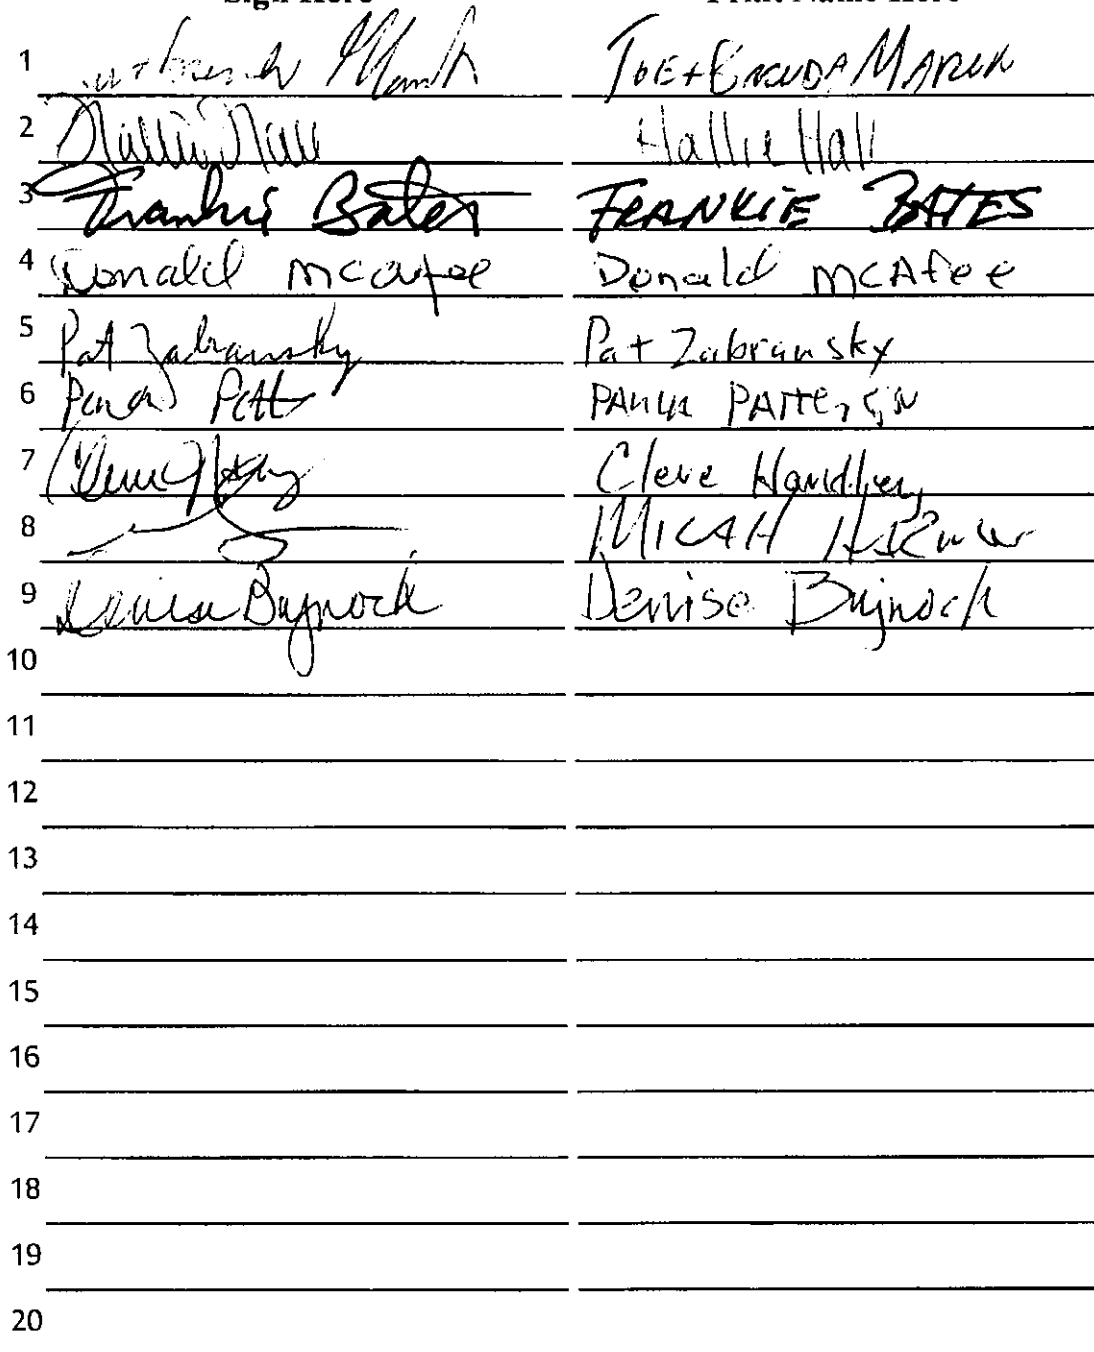 Sign Here Print Name Here
1 JOE + BRENDA MARCH
2 Hallie Hall Hallie Hall
3 Frankie Bates FRANKIE BATES
4 Donald McAfee Donald McAfee
5 Pat Zabransky Pat Zabransky
6 PATTERSON
7 Cleve
8 MICAH
9 Denise Bujnoch Denise Bujnoch
10
11
12
13
14
15
16
17
18
19
20